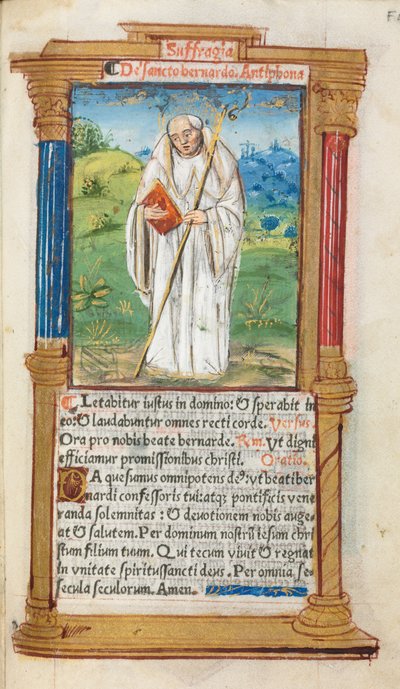 Suffragia
De sancto bernardo. Antiphona
Letabitur iustus in domino: & sperabit in
eo: & laudabuntur omnes recti corde. Versus.
Ora pro nobis beate bernarde. Rm. Vt digni
efficiamur promissionibus christi. Oratio.
DA quesumus omnipotens de9: vt beati ber
nardi confessoris tui: atq; pontificis vene
randa solemnitas: & deuotionem nobis auge
at & salutem. Per dominum nostrū iesum chri
stum filium tuum. Qui tecum viuit & regnat
in vnitate spiritussancti deus. Per omnia se
secula seculorum. Amen.